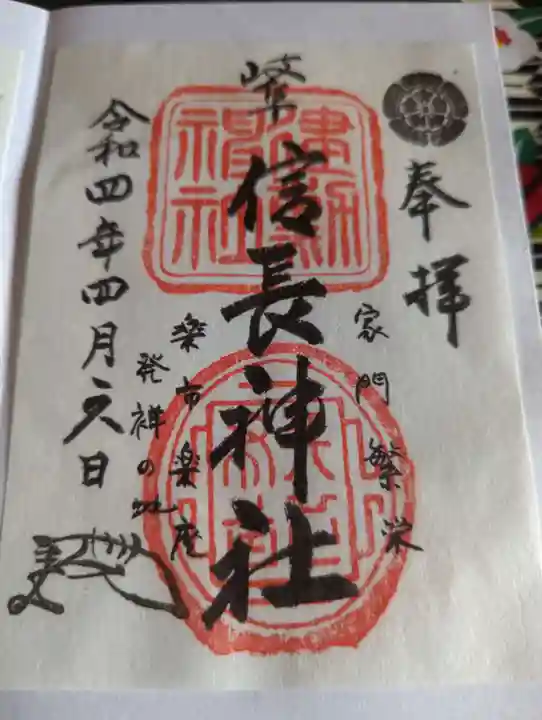 奉拝
家門繁栄
岐阜
信長神社
建勲神社
楽市楽座
発祥の地
令和四年四月六日